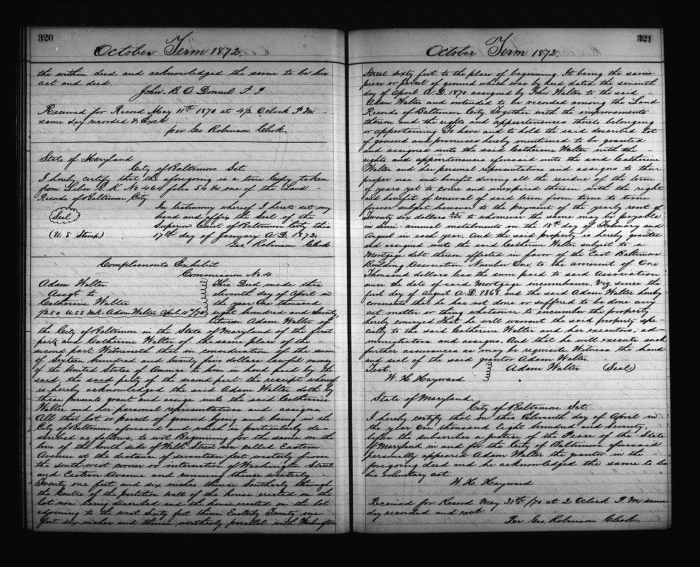 320
October Term 1872.
the within deed and acknowledged the same to be his
act and deed.
John R. O. Donnel J P
Received for Record May 11th 1870 at 4 1/2 O'clock P M
same day recorded & Ex'd
per Geo Robinson Clerk.
State of Maryland
City of Baltimore Sct.
I hereby certify that the aforegoing is a true Copy taken
from Liber G. R. No 464 folio 54 &c one of the Land
Records of Baltimore City
In testimony whereof I hereto set my
hand and affix the Seal of the
(Seal)
Superior Court of Baltimore City this
(U S Stamp)
17th day of January A.D. 1872.
Geo Robinson Clerk
Complainants Exhibit
Commission No 4
Adam Walter
This Deed made this
Assgt to
eleventh day of April in
Catherine Walter
the year One thousand
Adam Walter April 11th/70
eight hundred and Seventy
Between Adam Walter of
the City of Baltimore in the State of Maryland of the first
part and Catherine Walter of the same place of the
second part Witnesseth that in consideration of the sum
of Sixteen hundred and twenty five dollars lawful money
of the United States of America to him in hand paid by the
said, the said party of the second part the receipt whereof
is hereby acknowledged the said Adam Walter doth by
these presents grant and assign unto the said Catherine
Walter and her personal representatives and assigns
All that lot or parcel of ground lying and being in the
City of Baltimore aforesaid and which is particularly de-
scribed as follows, to wit Beginning for the same on the
line of the South side of Eastern
Avenue at the distance of seventeen feet westerly from
the southwest corner or intersection of Washington Street
and Eastern Avenue and running thence westerly
Twenty one feet and six inches thence Southerly through
the Centre of the partition wall of the house erected on the
lot now being described and the house erected on the lot
adjoining to the west Sixty feet thence Easterly Twenty one
feet six inches and thence northerly parallel with Washington
321
October Term 1872.
Street sixty feet to the place of beginning. It being the same
piece or parcel of ground which was by deed dated the seventh
day of April A.D. 1870 assigned by Walter to the said
Adam Walter and intended to be recorded among the Land
Records of Baltimore City Together with the improvements
thereon and the rights and appurtenances thereto belonging
or appertaining To have and to hold the said described lot
of ground and premises hereby mentioned to be granted
and assigned unto the said Catherine Walter with the
rights and appurtenances aforesaid unto the said Catherine
Walter and her personal representatives and assigns to their
proper use and benefit during all the residue of the term
of years yet to come and unexpired therein with the right
and benefit of renewal of said term from time to time
forever subject however to the payment of the yearly rent of
Twenty six dollars to whomever the same may be payable
in semi-annual instalments on the 15th day of February and
August in each year. And the said property is hereby granted
and assigned unto the said Catherine Walter subject to a
Mortgage debt thereon effected in favor of the East Baltimore
Building Association Number Two to the amount of One
Thousand dollars less the sum paid to said Association
since the date of said Mortgage incumbrance Viz since the
first day of August A.D. 1868. And the said Adam Walter hereby
covenants that he has not done or suffered to be done any
act matter or thing whatsoever to encumber the property
hereby conveyed that he will warrant the said property spec-
ially to the said Catherine Walter and her executors, ad-
ministrators and assigns. And that he will execute such
further assurances as may be requisite. Witness the hand
and seal of the said grantor Adam Walter
Test.
Adam Walter (Seal)
W. H. Hayward
State of Maryland.
City of Baltimore Sct.
I hereby certify that on this thirteenth day of April in
the year One thousand Eight hundred and Seventy
before the subscriber a Justice of the Peace of the State
of Maryland in and for the City of Baltimore aforesaid
personally appeared Adam Walter the grantor in the
foregoing deed and he acknowledged the same to be
his voluntary act.
W. H. Hayward
Received for Record May 31st/70 at 2 O'clock P M same
day recorded and ex'd
Per Geo Robinson Clerk